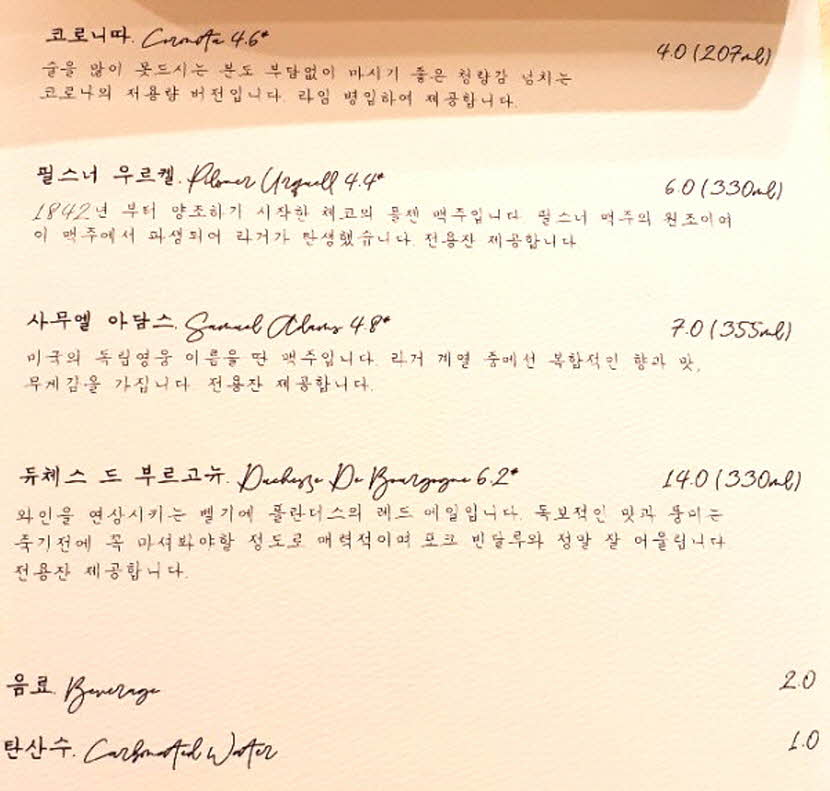 코로니따. Coronita 4.6* 4.0 (207ml)
술을 많이 못드시는 분도 부담없이 마시기 좋은 청량감 넘치는
코로나의 저용량 버전입니다. 라임 병입하여 제공합니다.
필스너 우르켈. Pilsner Urquell 4.4* 6.0 (330ml)
1842년 부터 양조하기 시작한 체코의 플젠 맥주입니다. 필스너 맥주의 원조이며
이 맥주에서 파생되어 라거가 탄생했습니다. 전용잔 제공합니다.
사무엘 아담스. Samuel Adams 4.8* 7.0 (355ml)
미국의 독립영웅 이름을 딴 맥주입니다. 라거 계열 중에선 복합적인 향과 맛,
무게감을 가집니다. 전용잔 제공합니다.
듀체스 드 부르고뉴. Duchesse De Bourgogne 6.2* 14.0 (330ml)
와인을 연상시키는 벨기에 플란더스의 레드 에일입니다. 독보적인 맛과 풍미는
죽기전에 꼭 마셔봐야할 정도로 매력적이며 포크 빈달루와 정말 잘 어울립니다.
전용잔 제공합니다.
음료. Beverage 2.0
탄산수. Carbonated Water 1.0